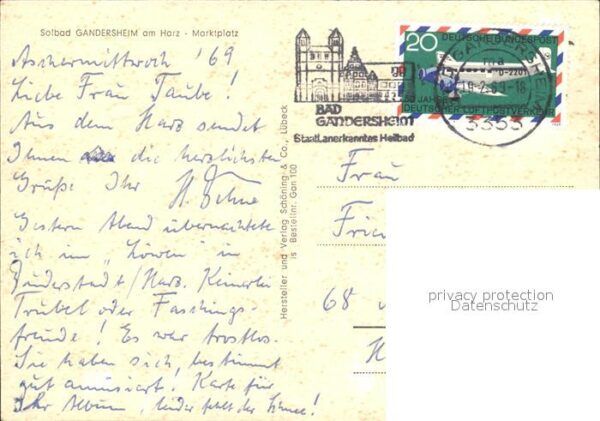 Solbad GANDERSHEIM am Harz - Marktplatz
Aschermittwoch '69
Liebe Frau Taube!
Aus dem Harz sendet
Ihnen die herzlichsten
Grüße Ihr
Gestern Abend übernachtete
ich im "Löwen" in
Duderstadt/Harz. Keinerlei
Trubel oder Faschings-
freude! Es war trostlos.
Sie haben sich bestimmt
gut amüsiert. Karte für
Ihr Album, leider fehlt der Schnee!
Hersteller und Verlag Schöning & Co., Lübeck
is Bestellnr. Gan 100
BAD
GANDERSHEIM
Staatl. anerkanntes Heilbad
20 DEUTSCHE BUNDESPOST
D-2201
50 JAHRE
DEUTSCHER LUFTPOSTVERKEHR
GANDERSHEIM
3353
Frau
68
privacy protection
Datenschutz